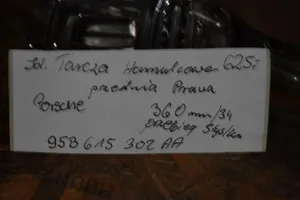 Tarcza Hamulcowa 625,-
przednia Prawa
Porsche
360 mm/34
przebieg 5tys/km
958 615 302 AA